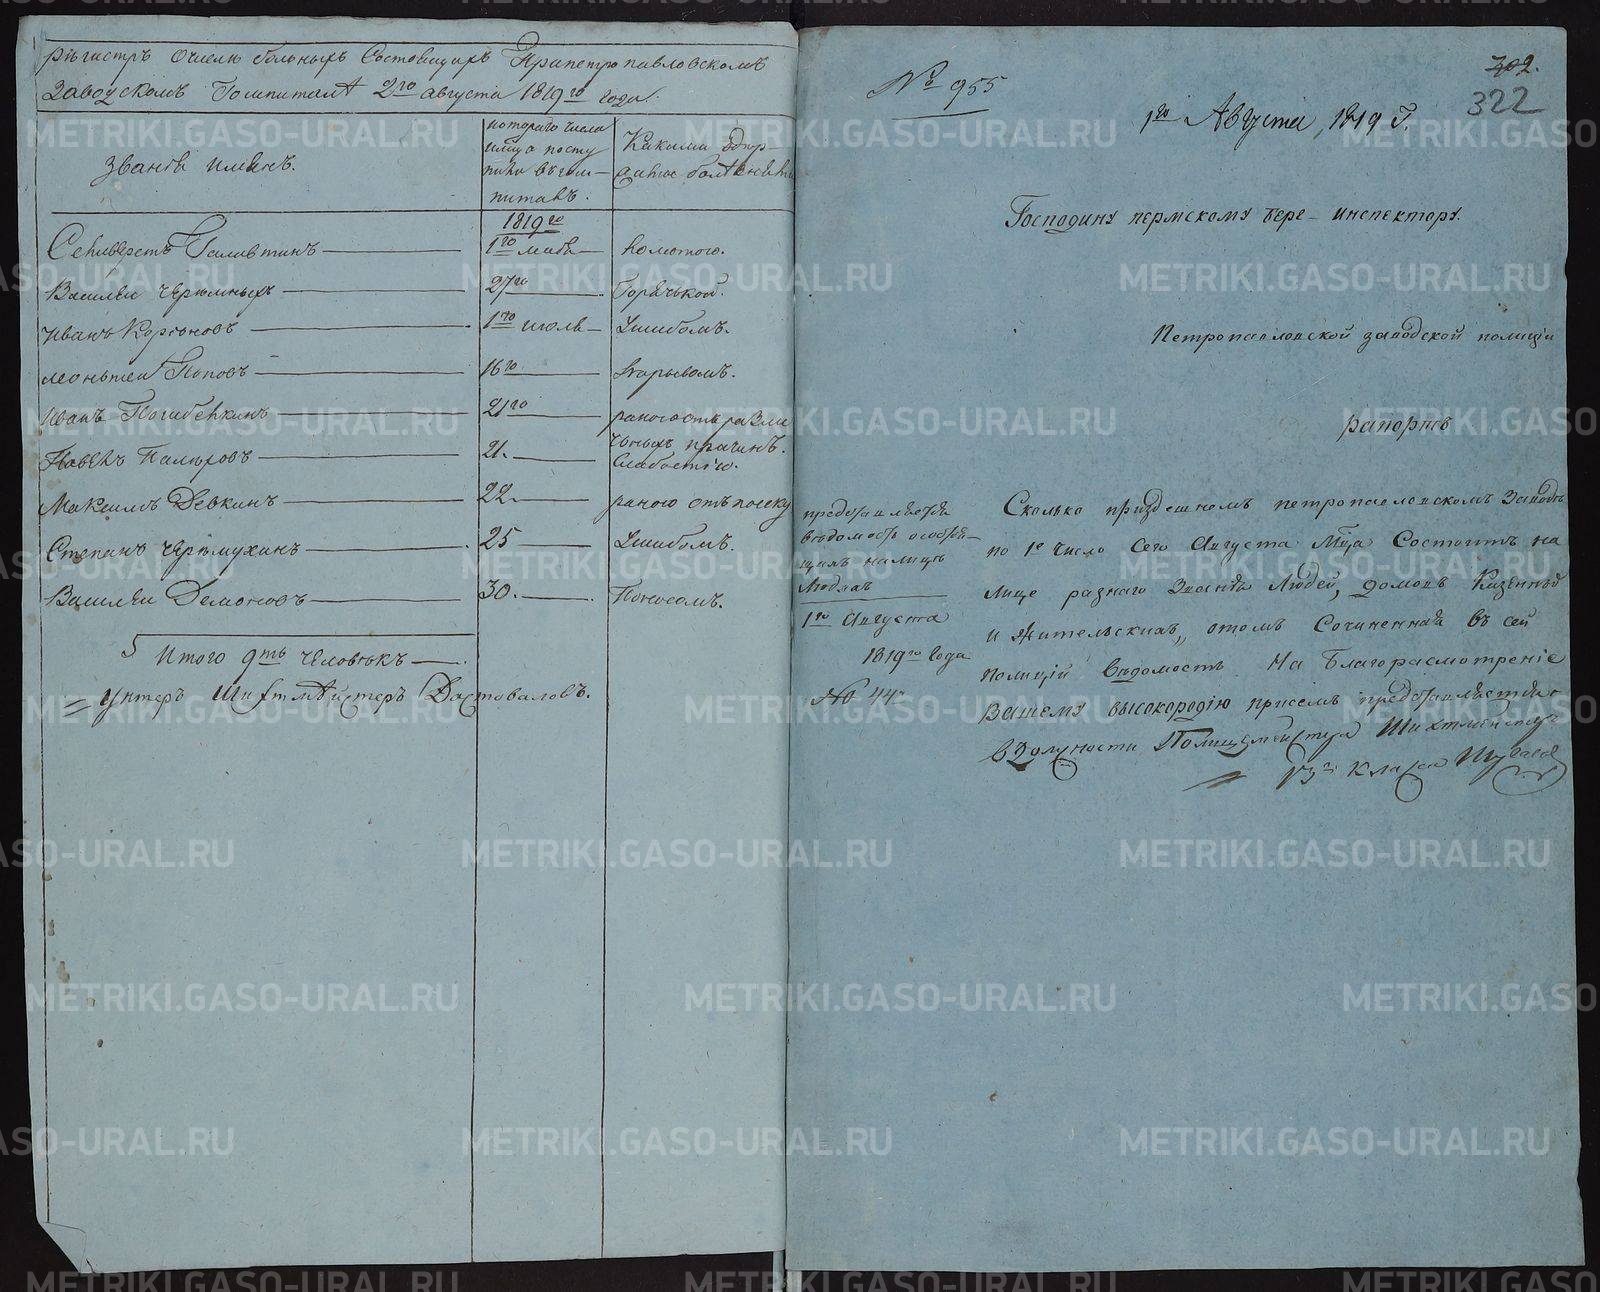 Рѣгистръ Очислѣ больныхъ Состоящихъ Припетропавловскомъ
Заводскомъ Гошпиталѣ 2го августа 1819го года.
званіѣ имянъ.
котораго числа
мѣсяца посту
пили въгош-
питаль.
Какими одер-
житсе болѣзнѣми
1819го
Селивѣрстъ 1го маѣ ломотою.
Василеи Черемныхъ 27го Горячькой.
Иванъ Корсоновъ 1го июлѣ Ушибомъ.
леонътеи Поповъ 16го
Иванъ Погибѣлкинъ 21го раною отъ разли
чьныхъ причинъ.
Павѣлъ 21. Слабостію.
Максимъ Девкинъ 22 раною отъ посеку
Степанъ Черѣмухинъ 25 Ушибомъ.
Василеи Демоновъ 30. Поносомъ.
Итого 9ть Человѣкъ
Унтеръ Шихтмѣйстеръ Достоваловъ.
№ 955
702.
322
1го Августа, 1819 Г.
Господину пермскому берг-инспектору.
Петропавловской заводской полицiи
рапортъ
представляется
вѣдомость осостоя-
щихъ налицѣ
Людяхъ
1го Августа
1819го Года
№ 44
Сколько приздешнемъ петропавловскомъ Заводѣ
по 1е число Сего Августа Мца Состоитъ на
лице разнаго Званія Людей, домовъ Казенныхъ
и жительскихъ, отомъ Сочиненная въ сей
полиціи вѣдомость На Благорасмотрение
Вашему высокородію присемъ представляется
вДолжности Полицмейстера Шихтмейстеръ
13го класса